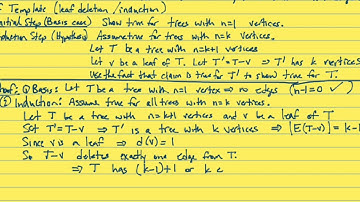 F Template (leaf deletion / induction)
Initial Step (Basis case) Show true for trees with n=1 vertices.
Induction Step (Hypothesis) Assume true for trees with n=k vertices.
Let T be a tree with n=k+1 vertices
Let v be a leaf of T. Let T'=T-v ⇒ T' has k vertices
Use the fact that claim is true for T' to show true for T.
Proof: ① Basis: Let T be a tree with n=1 vertex ⇒ no edges (n-1=0 ✓)
② Induction: Assume true for all trees with n=k vertices.
Let T be a tree with n=k+1 vertices and v be a leaf of T
Set T'=T-v ⇒ T' is a tree with k vertices ⇒ |E(T-v)| = k-1
Since v is a leaf ⇒ d(v)=1
So T-v deletes exactly one edge from T.
⇒ T has (k-1)+1 or k e